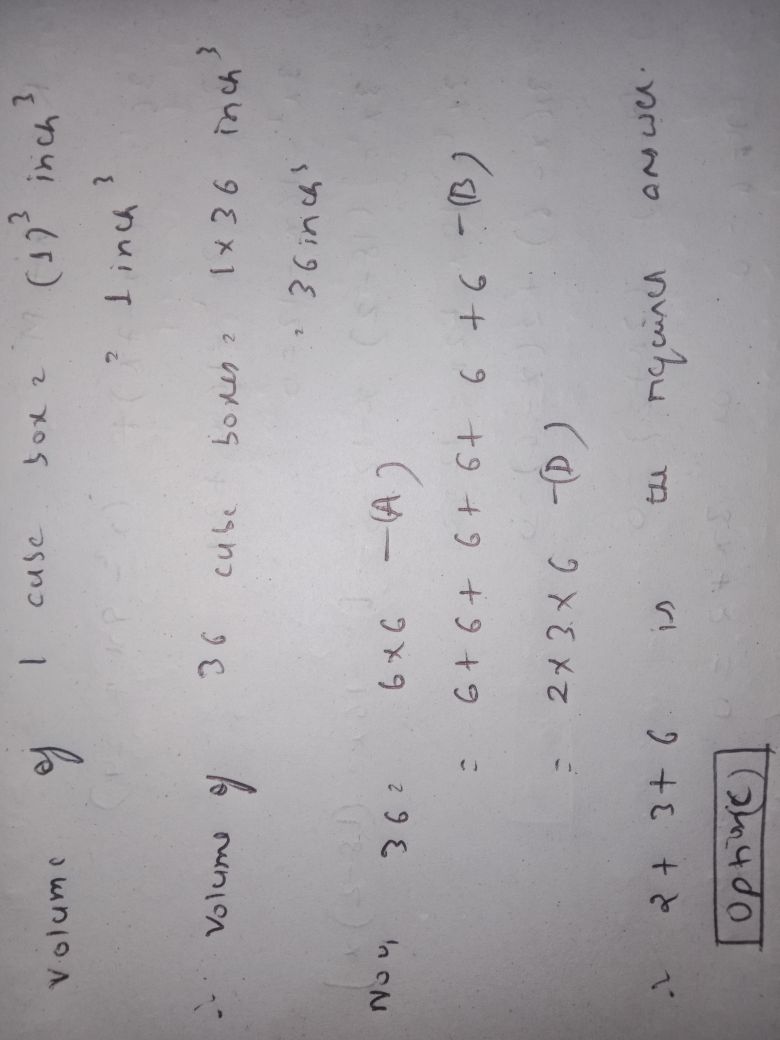 Volume of 1 cube box = (1)³ inch³
= 1 inch³
∴ Volume of 36 cube boxes = 1 x 36 inch³
= 36 inch³
Now, 36 = 6x6 —(A)
= 6+6+6+6+6+6 -(B)
= 2x3x6 -(D)
∴ 2+3+6 is the required answer.
Option(C)